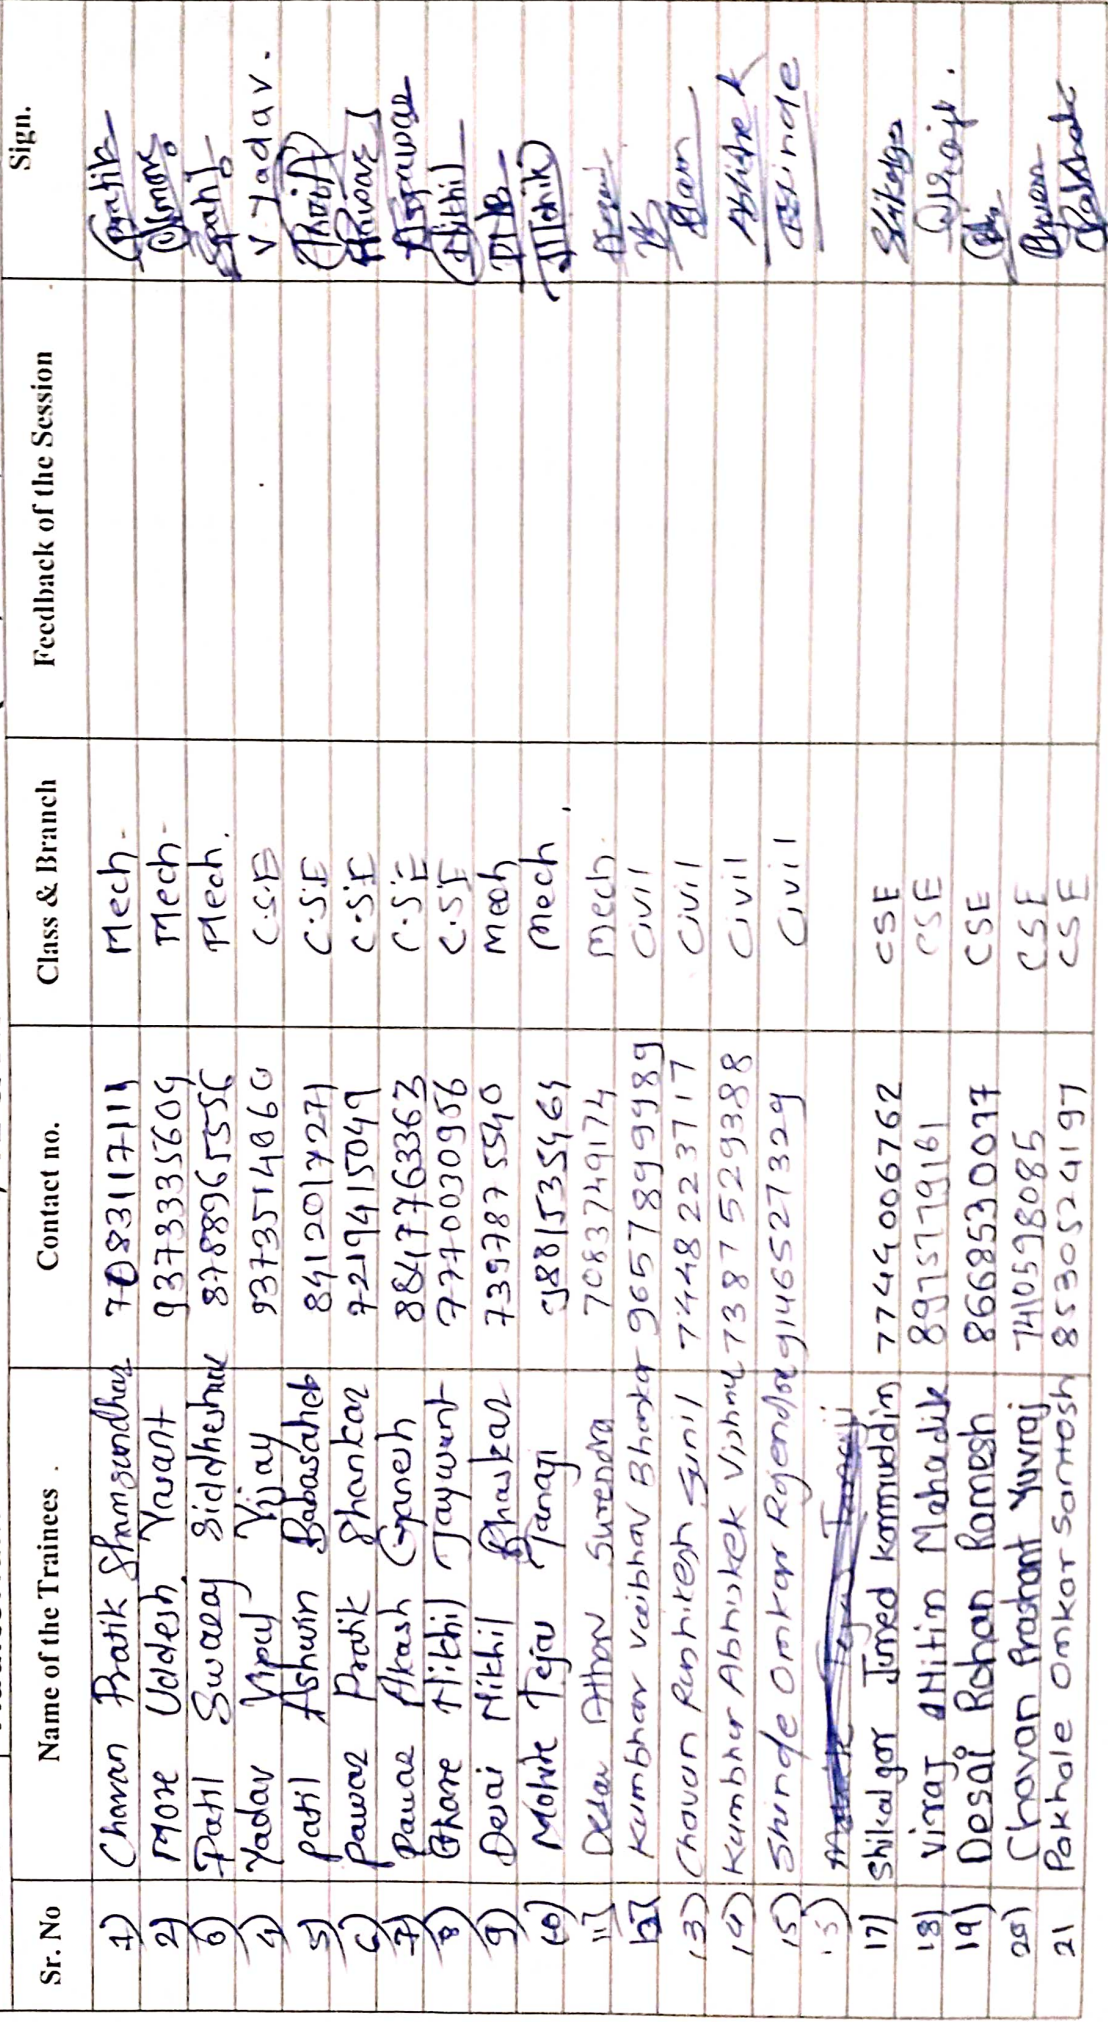 Sr. No Name of the Trainees . Contact no. Class & Branch Feedback of the Session Sign.
1) Chavan Pratik Shamsundhar 7083117111 Mech. Pratik
2) More Uddesh Yvant 9373335604 Mech.
3) Patil Swaraj Siddheshwar 8788965556 Mech.
4) Yadav Vipul Vijay 9373514060 C.S.E V.Yadav.
5) Patil Ashwin Babasaheb 8412017271 C.S.E
6) Pawar Pratik Shankar 7219415049 C.S.E
7) Pawar Akash Ganesh 8847763363 C.S.E
8) Ghare Nikhil Jaywant 7770030956 C.S.E Nikhil
9) Desai Nikhil Bhaskar 7397875540 Mech
10) Mohite Tejas Tanaji 9881535464 Mech.
11) Desai Atharv Surendra 7083749174 Mech.
12) Kumbhar Vaibhav Bhaskar 9657899989 Civil
13) Chavan Rushikesh Sunil 7448223717 Civil
14) Kumbhar Abhishek Vishnu 7387529388 Civil Abhishek
15) Shinde Omkar Rajendra 9146527329 Civil OSinde
15)
17) Shikalgar Juned kamruddin 7744006762 CSE
18) Viraj Nitin Mahadik 8975779161 CSE
19) Desai Rohan Ramesh 8668530077 CSE
20) Chavan Prashant Yuvraj 7410598085 CSE
21 Pakhale Omkar Santosh 8530524197 CSE Pakhale